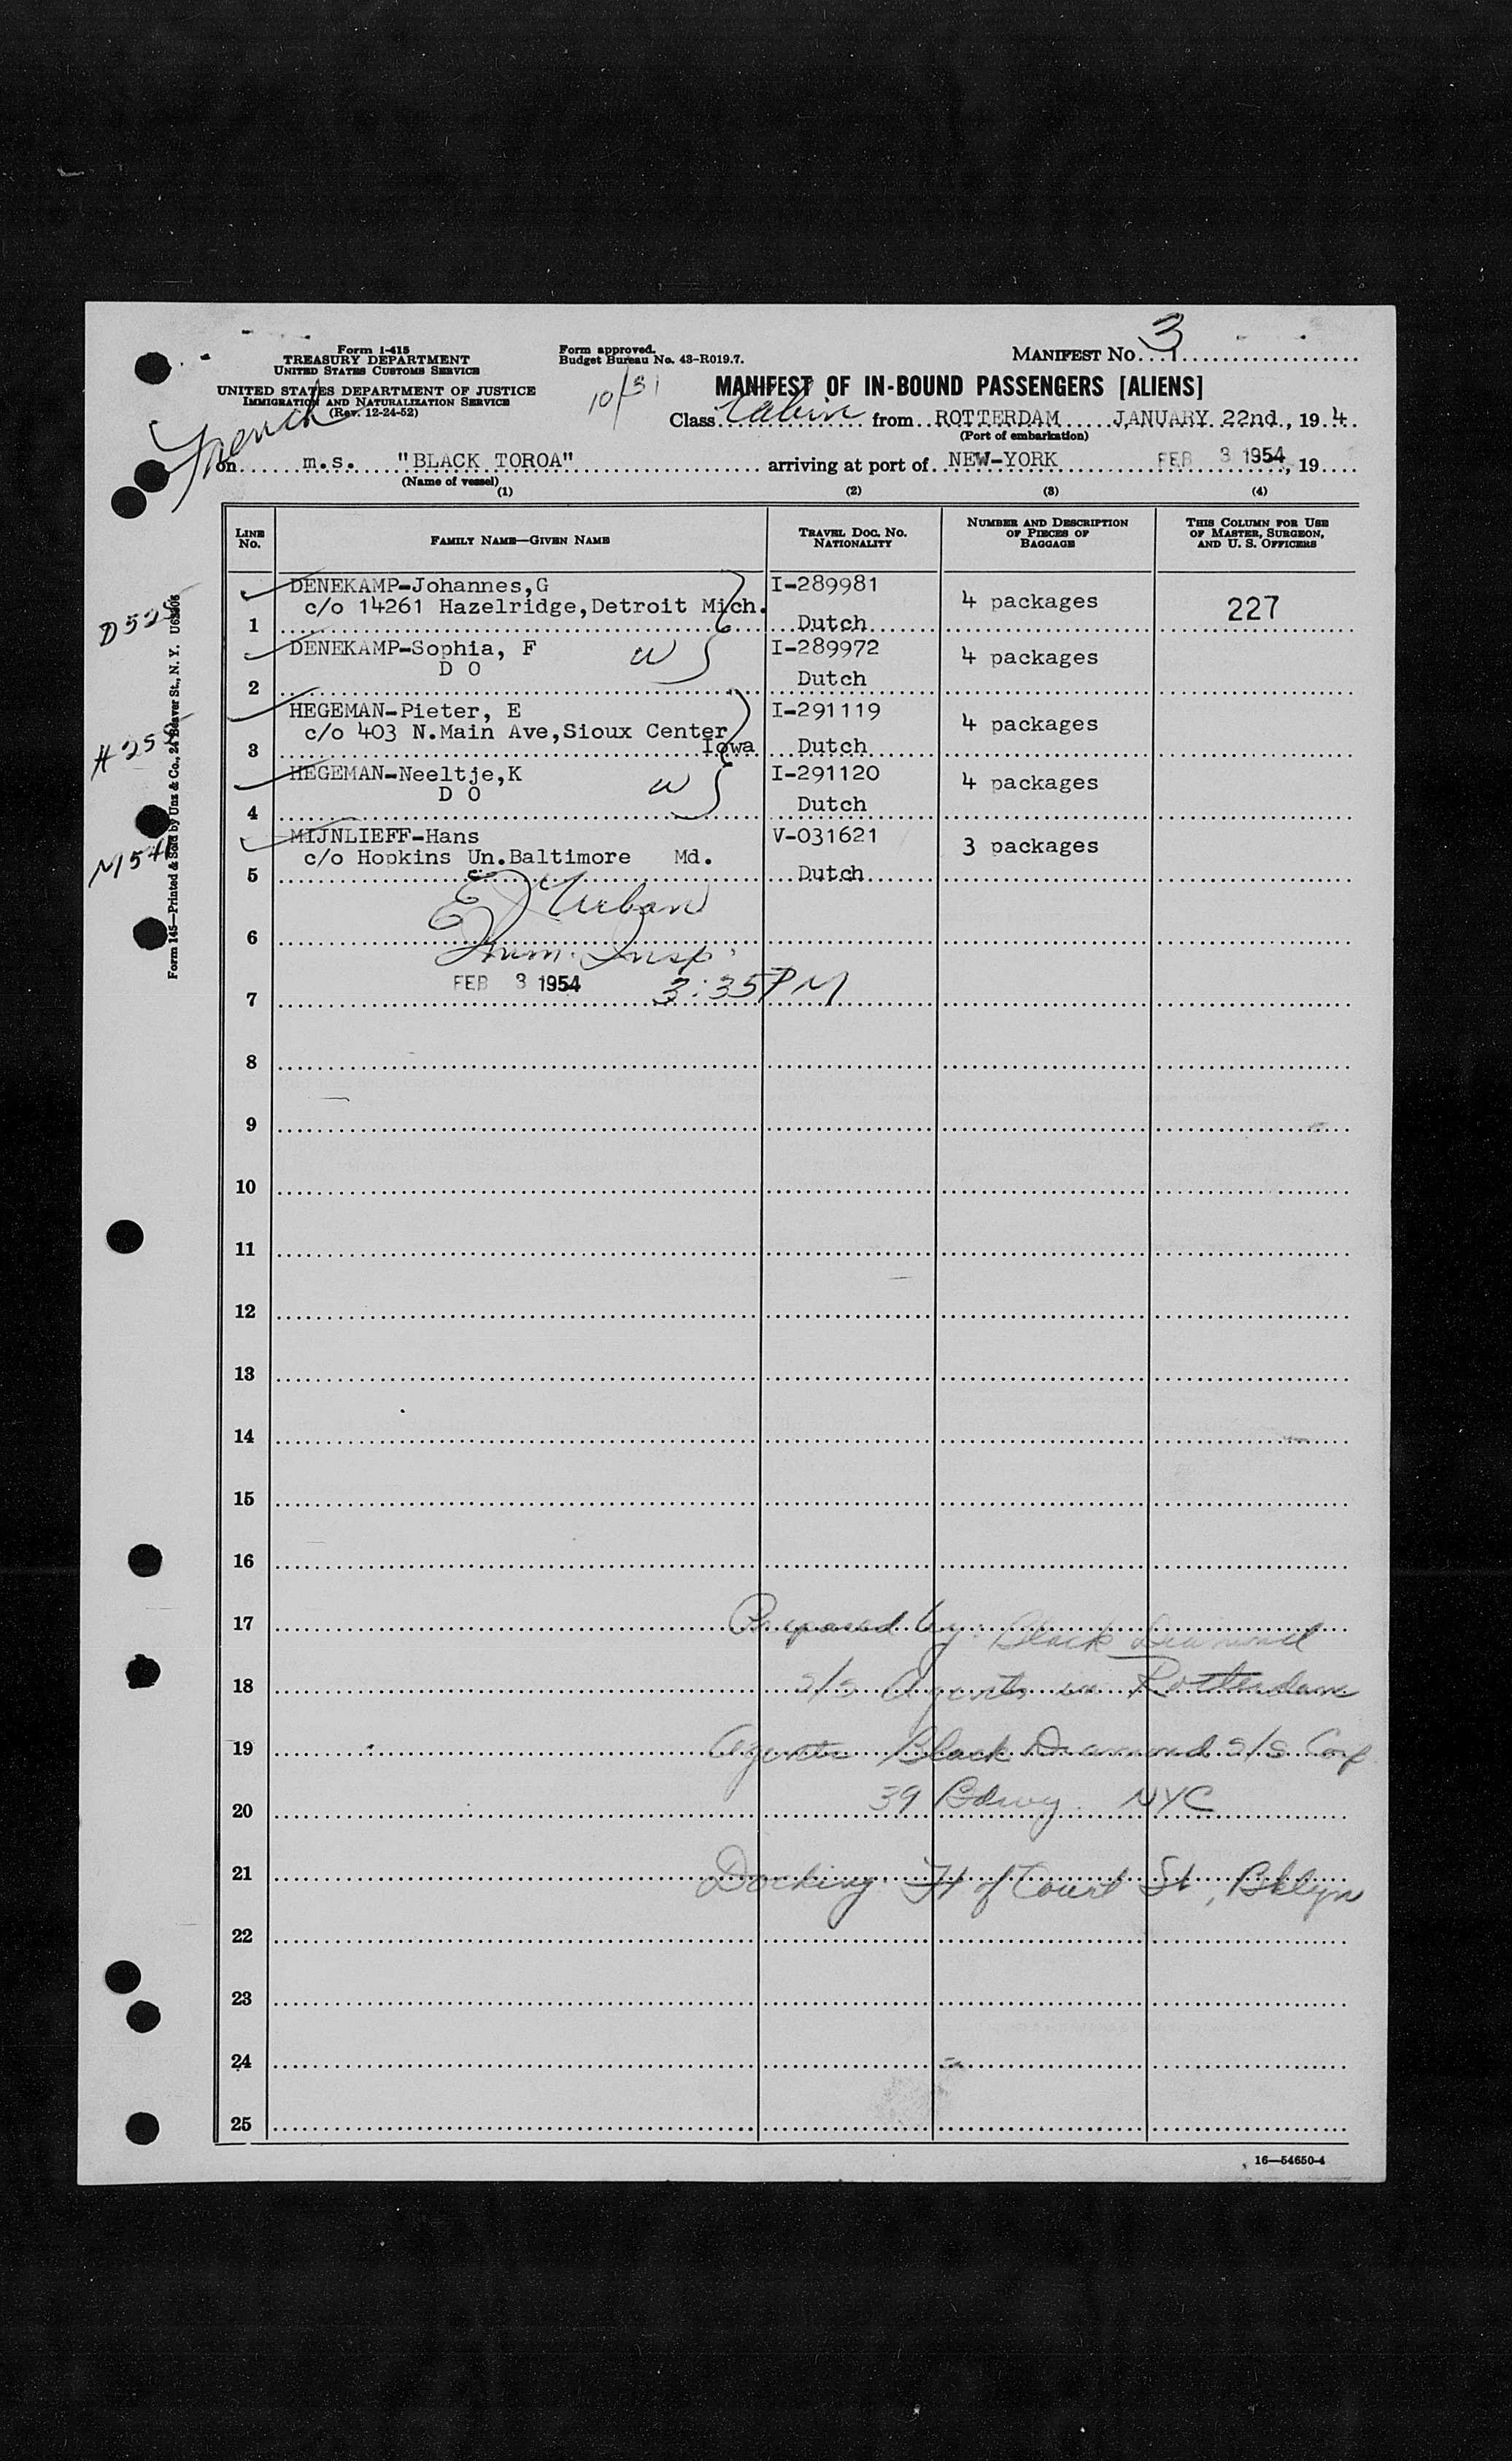 3
Form I-415
TREASURY DEPARTMENT
UNITED STATES CUSTOMS SERVICE
UNITED STATES DEPARTMENT OF JUSTICE
IMMIGRATION AND NATURALIZATION SERVICE
(Rev. 12-24-52)
Form approved.
Budget Bureau No. 43-R019.7.
MANIFEST No. 1
10/31
MANIFEST OF IN-BOUND PASSENGERS [ALIENS]
Class Cabin from ROTTERDAM JANUARY 22nd., 19 4.
(Port of embarkation)
French
on m.s. "BLACK TOROA" arriving at port of NEW-YORK FEB 3 1954, 19
(Name of vessel)
(1) (2) (3) (4)
LINE No. FAMILY NAME—GIVEN NAME TRAVEL DOC. NO. NATIONALITY NUMBER AND DESCRIPTION OF PIECES OF BAGGAGE THIS COLUMN FOR USE OF MASTER, SURGEON, AND U. S. OFFICERS
DENEKAMP-Johannes,G I-289981
c/o 14261 Hazelridge,Detroit Mich. 4 packages 227
1 Dutch
DENEKAMP-Sophia, F W I-289972 4 packages
D O
2 Dutch
HEGEMAN-Pieter, E I-291119 4 packages
c/o 403 N.Main Ave,Sioux Center
3 Iowa Dutch
HEGEMAN-Neeltje,K W I-291120 4 packages
D O
4 Dutch
MIJNLIEFF-Hans V-031621 3 packages
c/o Hopkins Un.Baltimore Md.
5 Dutch
E J Urban
6 Imm. Insp.
FEB 3 1954 3:35 PM
7
8
9
10
11
12
13
14
15
16
17 Prepared by: Black Diamond
18 s/s Agents in Rotterdam
19 Agents Black Diamond s/s Corp
20 39 Bdwy. NYC
21 Docking Ft of Court St, Bklyn
22
23
24
25
16—54650-4
Form 145—Printed & Sold by Unz & Co., 24 Beaver St., N. Y.